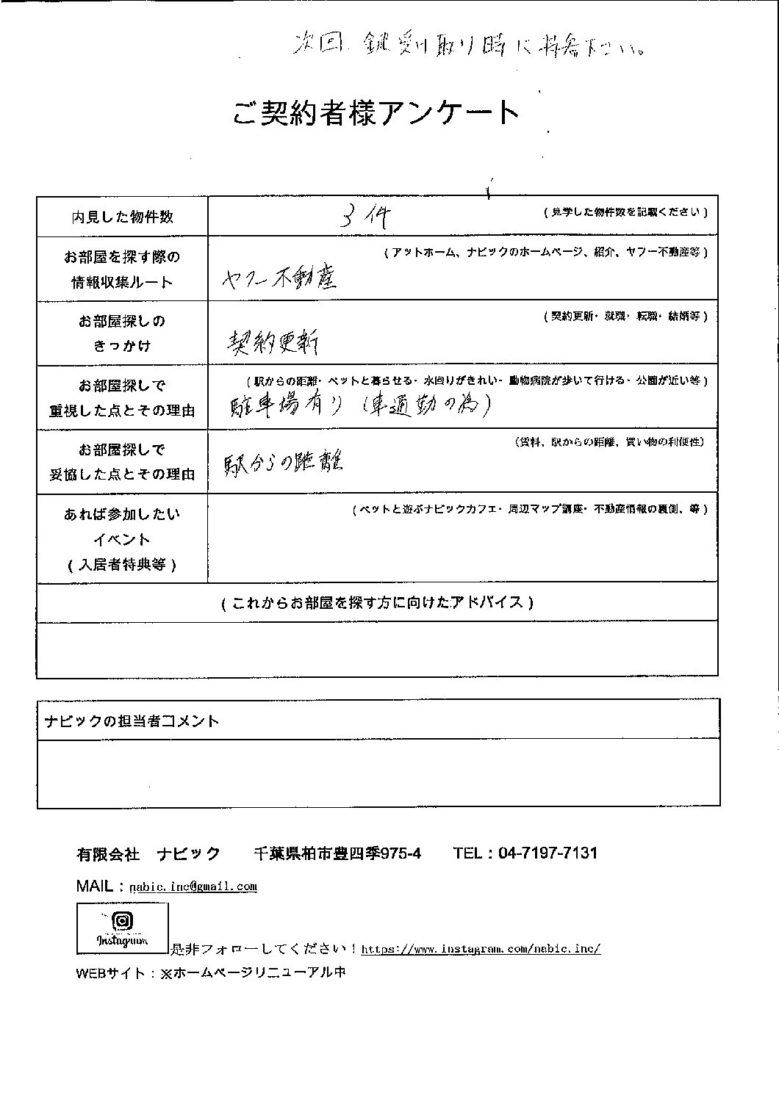 次回、鍵受け取り時に持参下さい。
ご契約者様アンケート
内見した物件数
3件
(見学した物件数を記載ください)
お部屋を探す際の
情報収集ルート
(アットホーム、ナビックのホームページ、紹介、ヤフー不動産等)
ヤフー不動産
お部屋探しの
きっかけ
(契約更新・就職・転職・結婚等)
契約更新
お部屋探しで
重視した点とその理由
(駅からの距離・ペットと暮らせる・水回りがきれい・動物病院が歩いて行ける・公園が近い等)
駐車場有り(車通勤の為)
お部屋探しで
妥協した点とその理由
(賃料、駅からの距離、買い物の利便性)
駅からの距離
あれば参加したい
イベント
(入居者特典等)
(ペットと遊ぶナビックカフェ・周辺マップ講座・不動産情報の裏側、等)
(これからお部屋を探す方に向けたアドバイス)
ナビックの担当者コメント
有限会社 ナビック 千葉県柏市豊四季975-4 TEL:04-7197-7131
MAIL:nabic.inc@gmail.com
Instagram
是非フォローしてください!https://www.instagram.com/nabic.inc/
WEBサイト:※ホームページリニューアル中